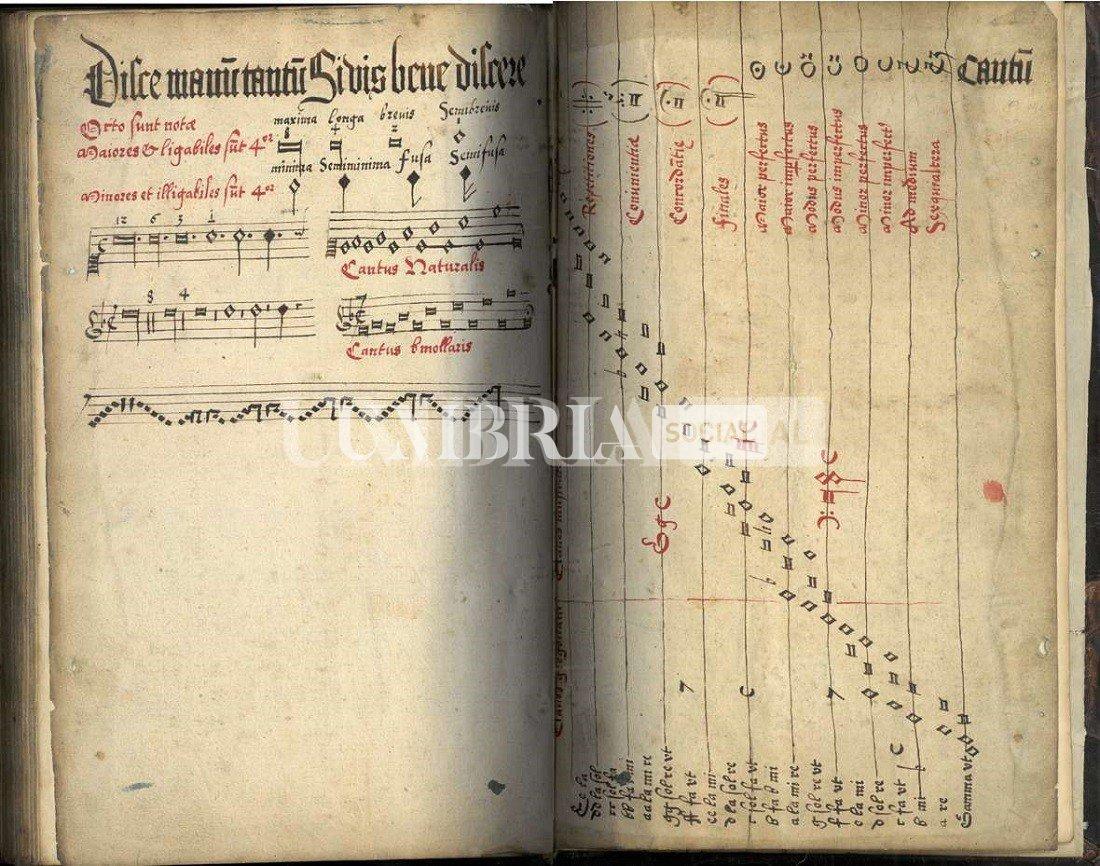 Disce manū tantū Si vis bene discere
Cantū
Octo sunt notæ
maxima longa brevis Semibrevis
Maiores & ligabiles sūt 4or
minima Semiminima fusa Semifusa
Minores et illigabiles sūt 4or
12 6 3 1
Cantus Naturalis
8 4
Cantus bmollaris
Repetitiones
Conuenientiæ
Concordātiæ
finales
Maior perfectus
Maior imperfectus
Modus perfectus
Modus imperfectus
Minor perfectus
Minor imperfect9
Ad medium
Sexquialtera
E e la
dd la sol
cc sol fa
bb fa b mi
aa la mi re
gg sol re vt
ff fa vt
ee la mi
d la sol re
c sol fa vt
b fa b mi
a la mi re
g sol re vt
f fa vt
e la mi
d sol re
c fa vt
b mi
a re
Gamma vt
UMBRIA
SOCIAL